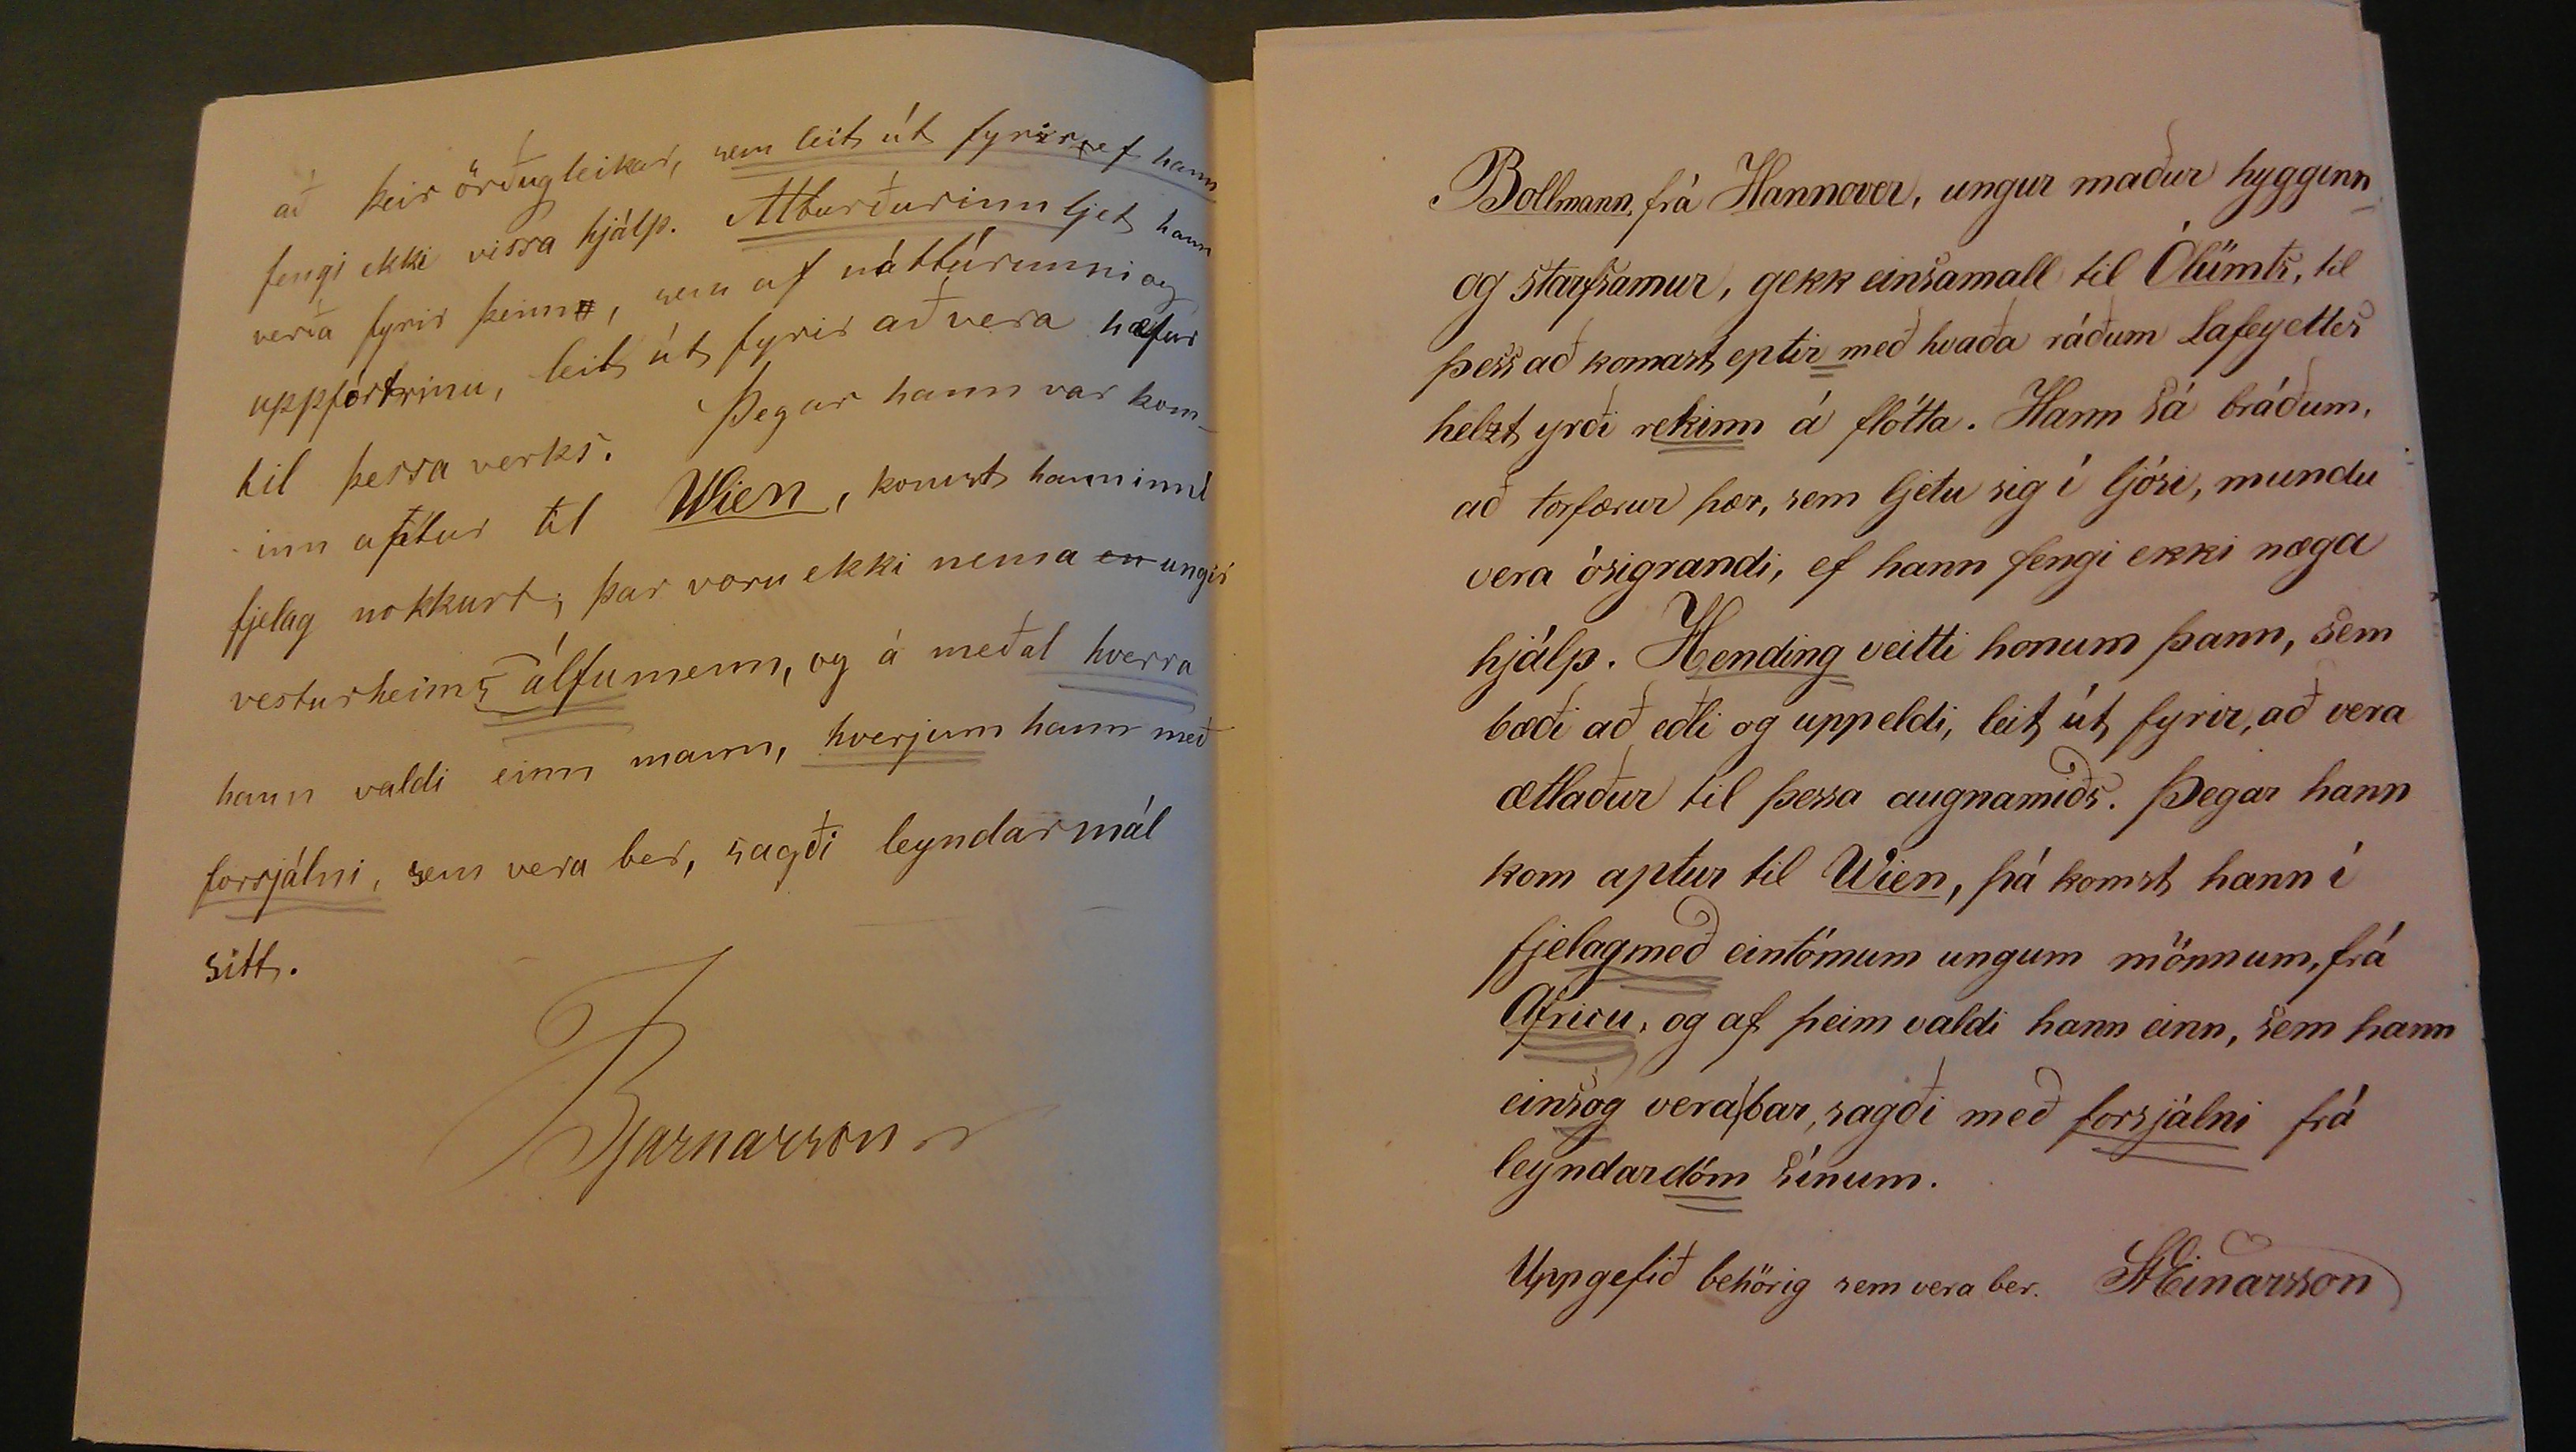 að þeir örðugleikar, sem leit út fyrir, ef hann
fengi ekki vissa hjálp. Atburðurinn ljet hann
verða fyrir þeim, sem af náttúrunni og
uppfóstrinu, leit út fyrir að vera hæfur
til þessa verks. Þegar hann var kom-
inn aptur til Wien, komst hann inní
fjelag nokkurt; þar voru ekki nema en ungir
vesturheims álfumenn, og á meðal hverra
hann valdi einn mann, hverjum hann með
forsjálni, sem vera ber, sagði leyndarmál
sitt.
Bjarnarson
Bollmann, frá Hannover, ungur maður hygginn
og starfsamur, gekk einsamall til Ólümts, til
þess að komast eptir með hvaða ráðum Lafeyettes
helzt yrði rekinn á flótta. Hann sá bráðum,
að torfærur þær, sem ljetu sig í ljósi, mundu
vera ósigrandi, ef hann fengi ekki næga
hjálp. Hending veitti honum þann, sem
bæði að eðli og uppeldi, leit út fyrir, að vera
ætlaður til þessa augnamiðs. Þegar hann
kom aptur til Wien, þá komst hann í
fjelag með eintómum ungum mönnum, frá
Africu, og af þeim valdi hann einn, sem hann
einsog vera bar, sagði með forsjálni frá
leyndardóm sínum.
Uppgefið behörig sem vera ber. StEinarsson